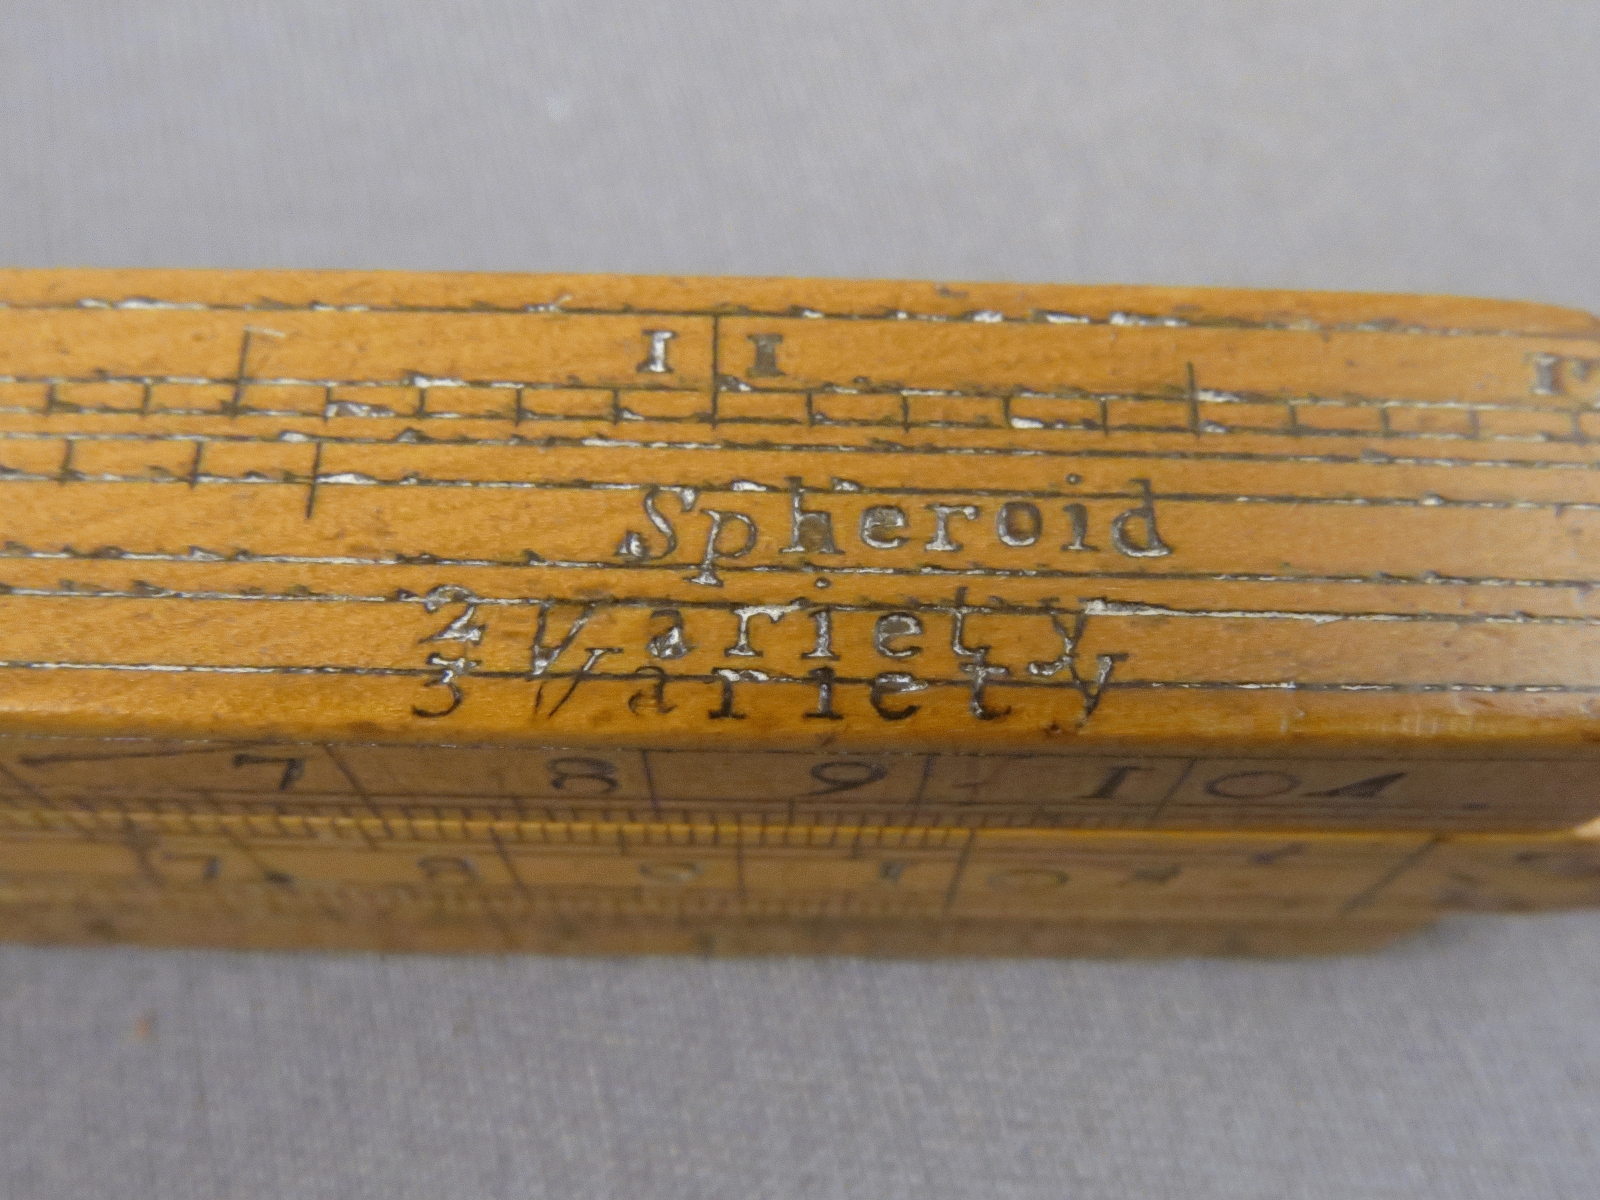 1 1
Spheroid
2 Variety
3 Variety
7 8 9 1 0 A
7 8 9 1 0